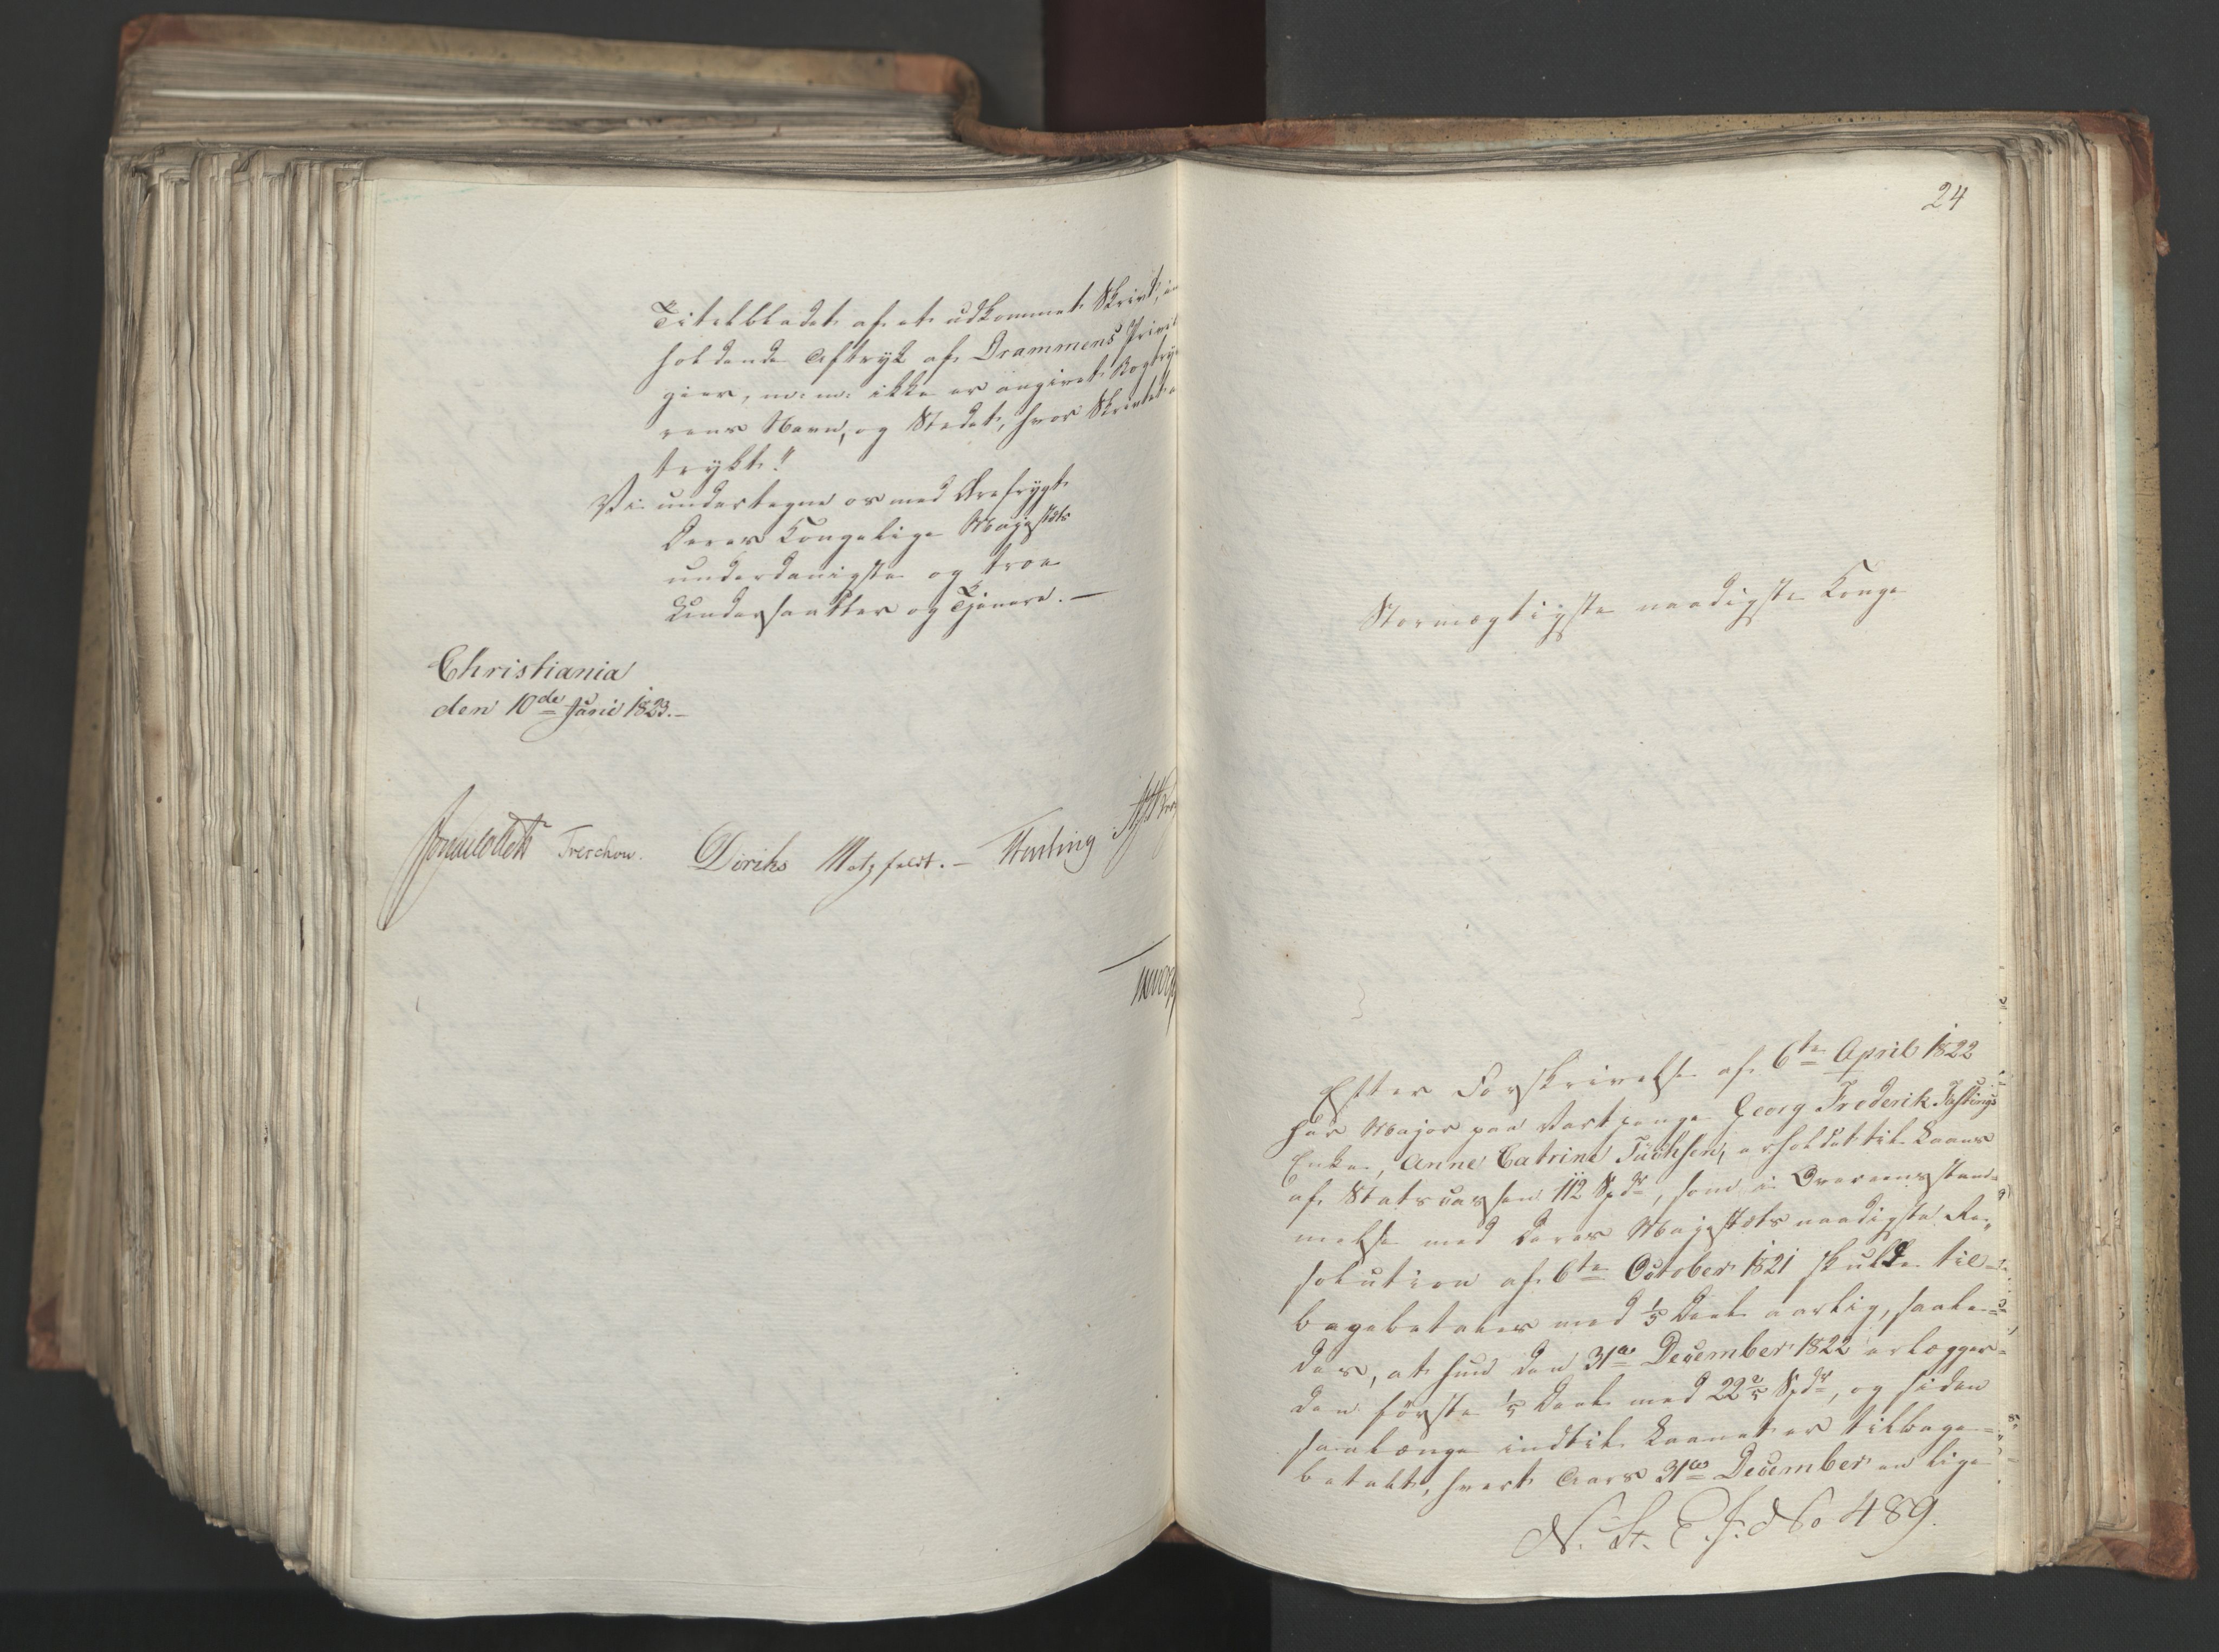 Titelbladet af et udkommet Skrivt, in
holdende Aftryk af Drammens Privil
gier, m: m: ikke er angivet Bogtry
rens Navn, og Stedet, hvor Skrivtet e
trykt."
Vi undertegne os med Ærefrygt
Deres Kongelige Majestæts
underdanigste og troe
Undersaatter og Tjenere. —
Christiania
den 10de Junii 1823. —
Jonas Collett Treschow. Diriks Motzfeldt. — Fasting
24
Stormægtigste naadigste Konge
Efter Forskrivelse af 6te April 1822
har Major paa Vartpenge Georg Frederik Fastings
Enke, Anne Catrine Tüchsen, erholdet til Laans
af Statscassen 112 Spdr, som i Overeensstem„
melse med Deres Majestæts naadigste Re„
solution af 6te October 1821 skulde til„
bagebetales med 1/5 Deel aarlig, saale„
des, at hun den 31te December 1822 erlægger
den første 1/5 Deel med 22 2/5 Spdr, og siden
saalænge indtil Laanet er tilbage„
betalt, hvert Aars 31te December en lige
N. St. E. J. No 489.